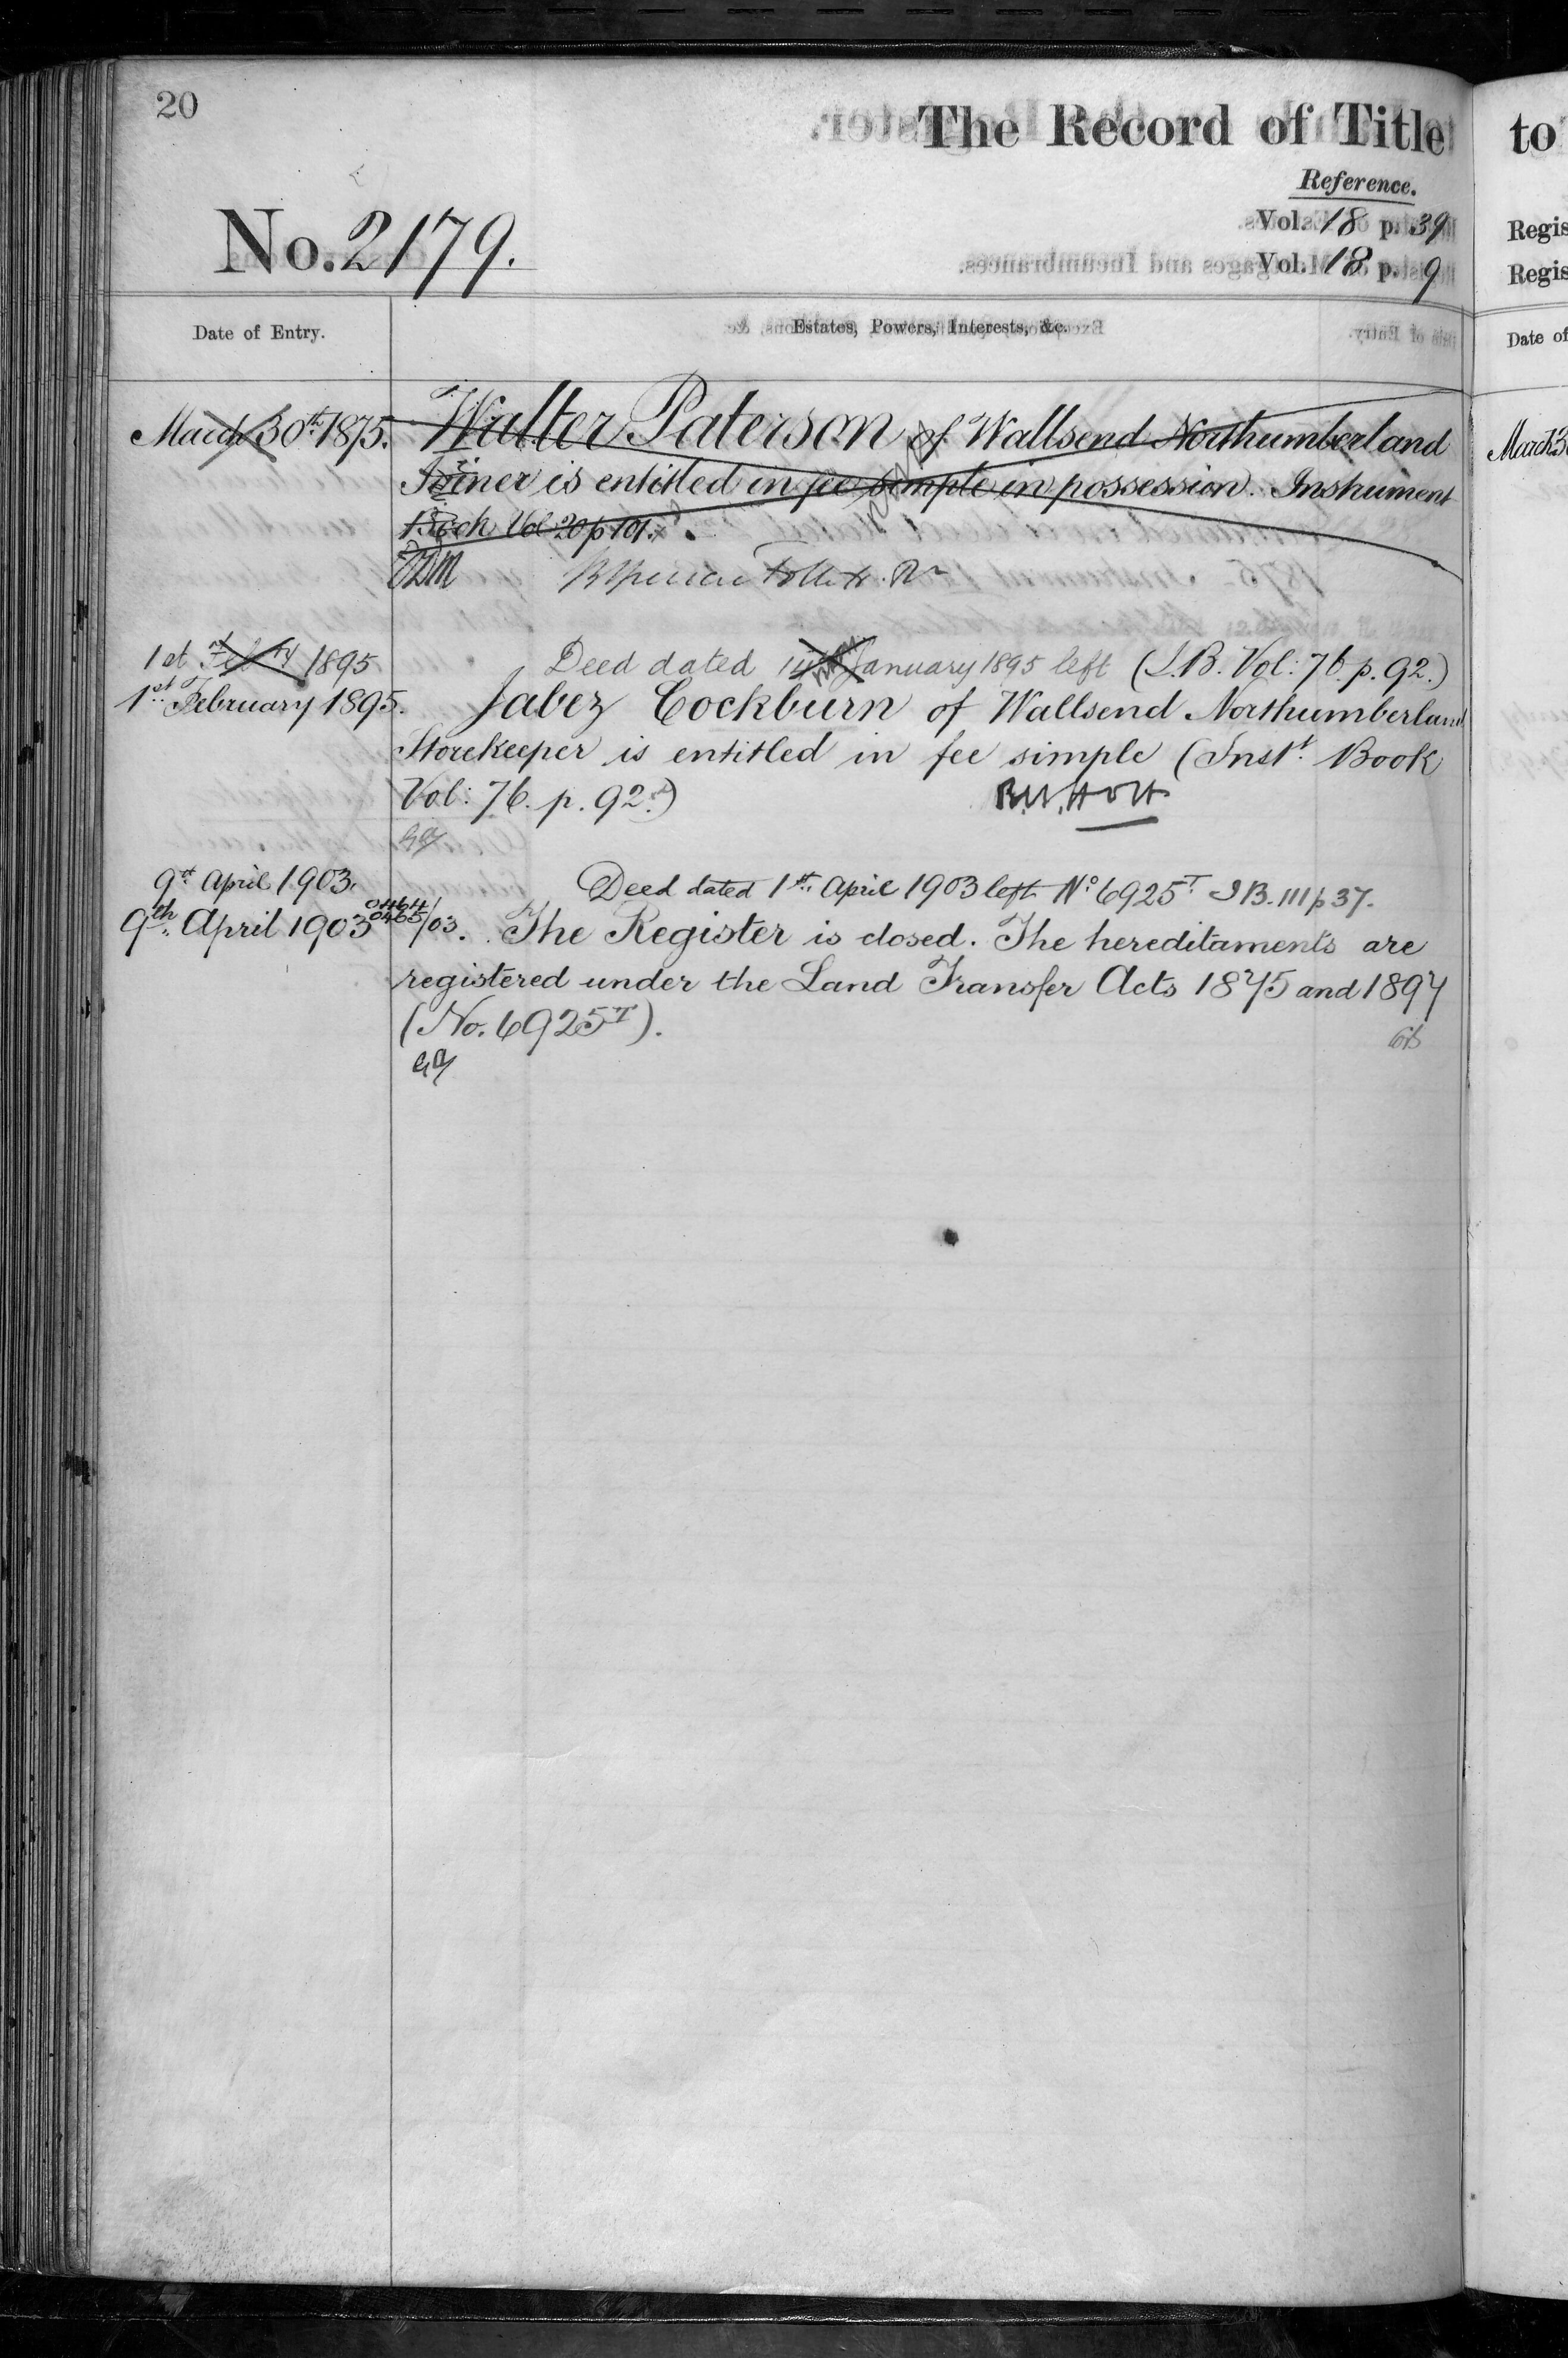 20
The Record of Title
to
Reference.
No. 2179.
Vol. 18 p. 39
Vol. 18 p. 9
Regis
Regis
Date of Entry.
Estates, Powers, Interests, &c.
Date of
March 30th 1875. Walter Paterson of Wallsend Northumberland
Joiner is entitled in fee simple in possession. Instrument
Book Vol 20 p 101.
March 3
1st Feb 1895 Deed dated January 1895 left (I.B. Vol: 76. p. 92.)
1st February 1895. Jabez Cockburn of Wallsend Northumberland
Storekeeper is entitled in fee simple (Inst. Book
Vol: 76. p. 92.) R.W. Holt
9th April 1903. Deed dated 1st April 1903 left No 6925T I B. 111 p 37.
9th April 1903 0464/0465/03. The Register is closed. The hereditaments are
registered under the Land Transfer Acts 1875 and 1897
(No. 6925T).